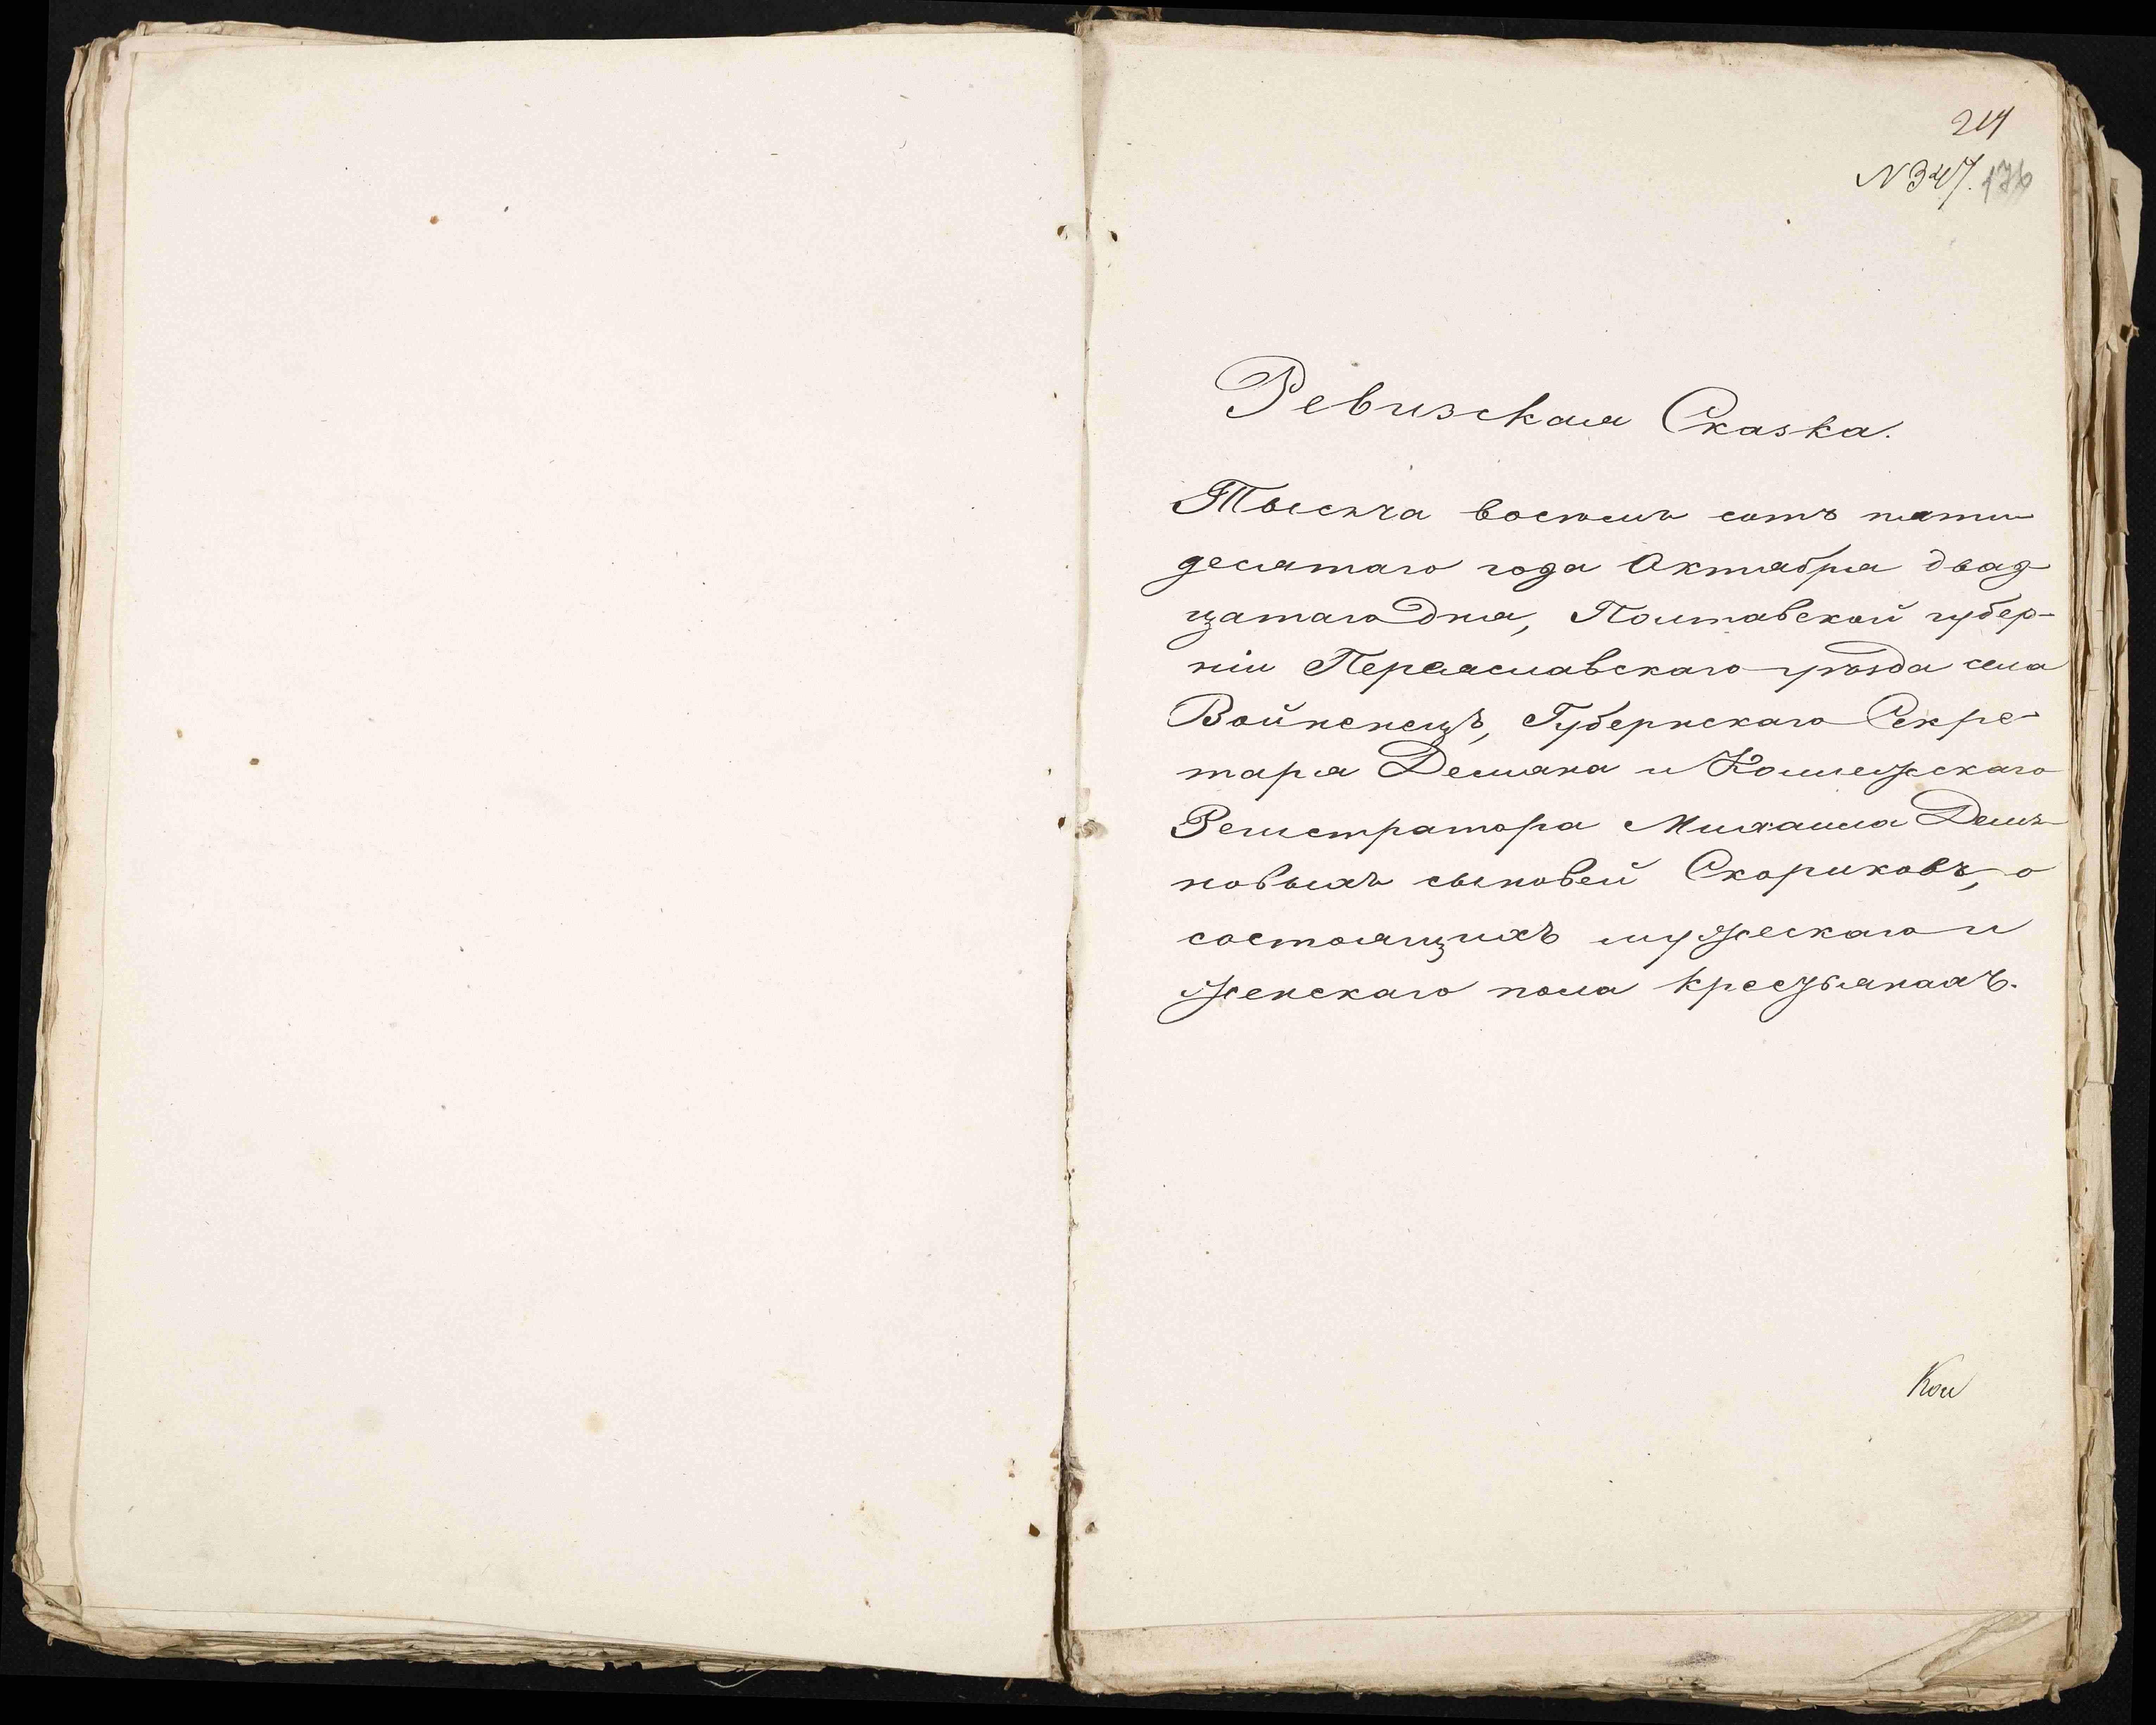 214
N 347. 176
Ревизская Сказка.
Тысяча восемь сотъ пяти
десятаго года Октября двад
цатаго дня, Полтавской губер-
ніи Переяславскаго уѣзда села
Войненецъ, Губернскаго Секре-
таря Демяна и Коллежскаго
Регистратора Михаила Демь
новыхъ сыновей Скориковъ, о
состоящихъ мужескаго и
женскаго пола крестьянахъ.